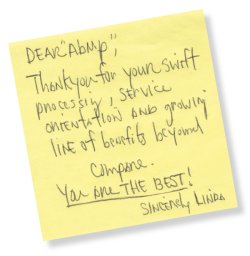 DEAR "ABMP",
Thank you for your swift
processing, service
orientation AND growing
LINE of benefits beyound
compare.
You ARE THE BEST!
SINCERELY, LINDA